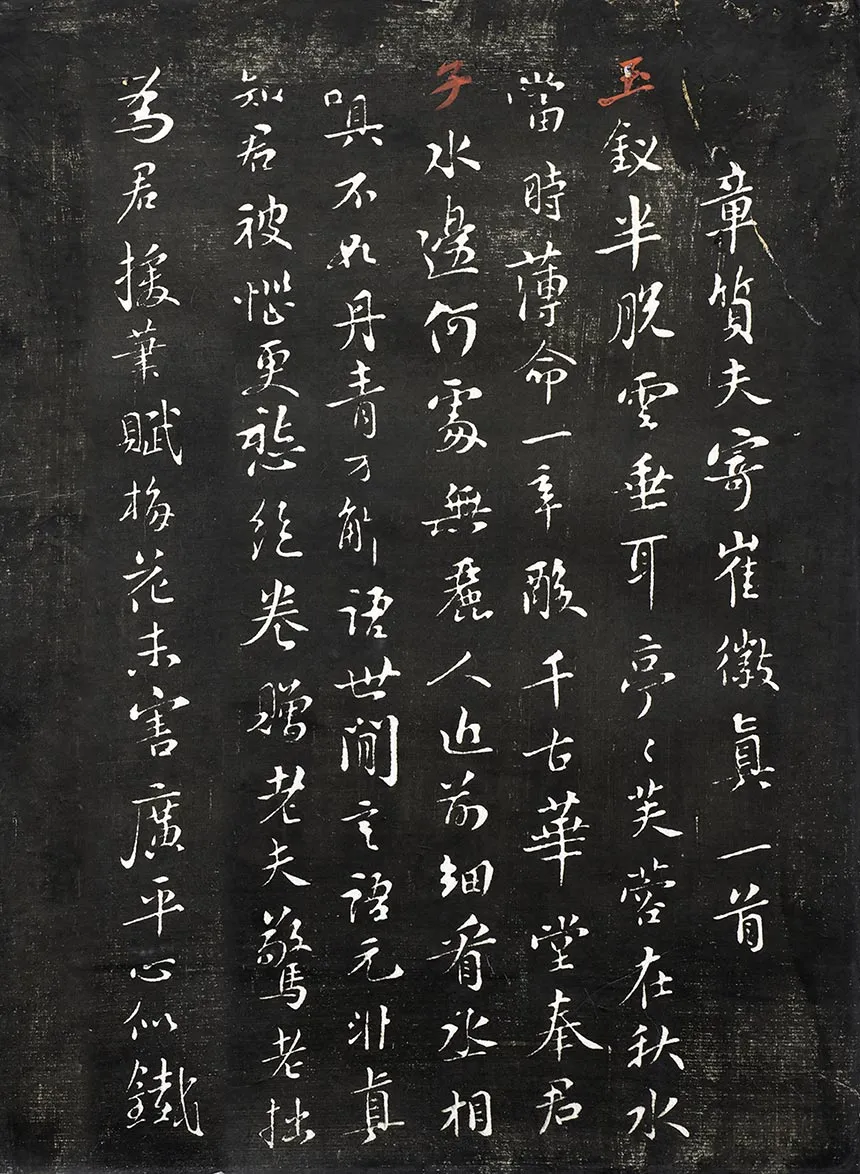 章質夫寄崔徽眞一首
玉釵半脫雲垂耳亭〻芙蓉在秋水
當時薄命一辛酸千古華堂奉君
子水邊何處無麗人近前細看丞相
嗔不如丹青不解語世間言語元非眞
知君被惱更愁絕卷贈老夫驚老拙
為君援筆賦梅花未害廣平心似鐵